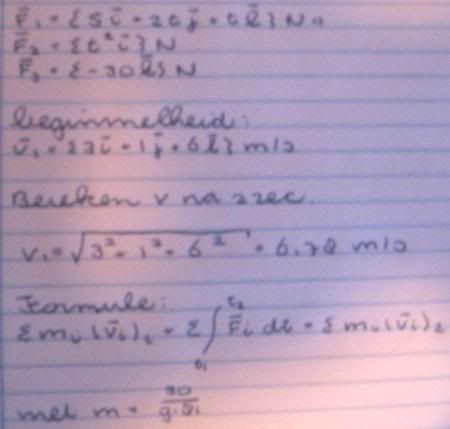 F̅₁ = {5i̅ + 2tj̅ + tk̅} N
F̅₂ = {t²i̅} N
F̅₃ = {-3tk̅} N
beginsnelheid:
v̅₁ = {3i̅ + 1j̅ + 6k̅} m/s
Bereken v na 2 sec.
v₁ = √(3² + 1² + 6²) = 6.78 m/s
Formule:
Σ mᵢ (v̅ᵢ)₁ + Σ ∫ₜ₁ᵗ² F̅ᵢ dt = Σ mᵢ (v̅ᵢ)₂
met m = 30 / 9.81